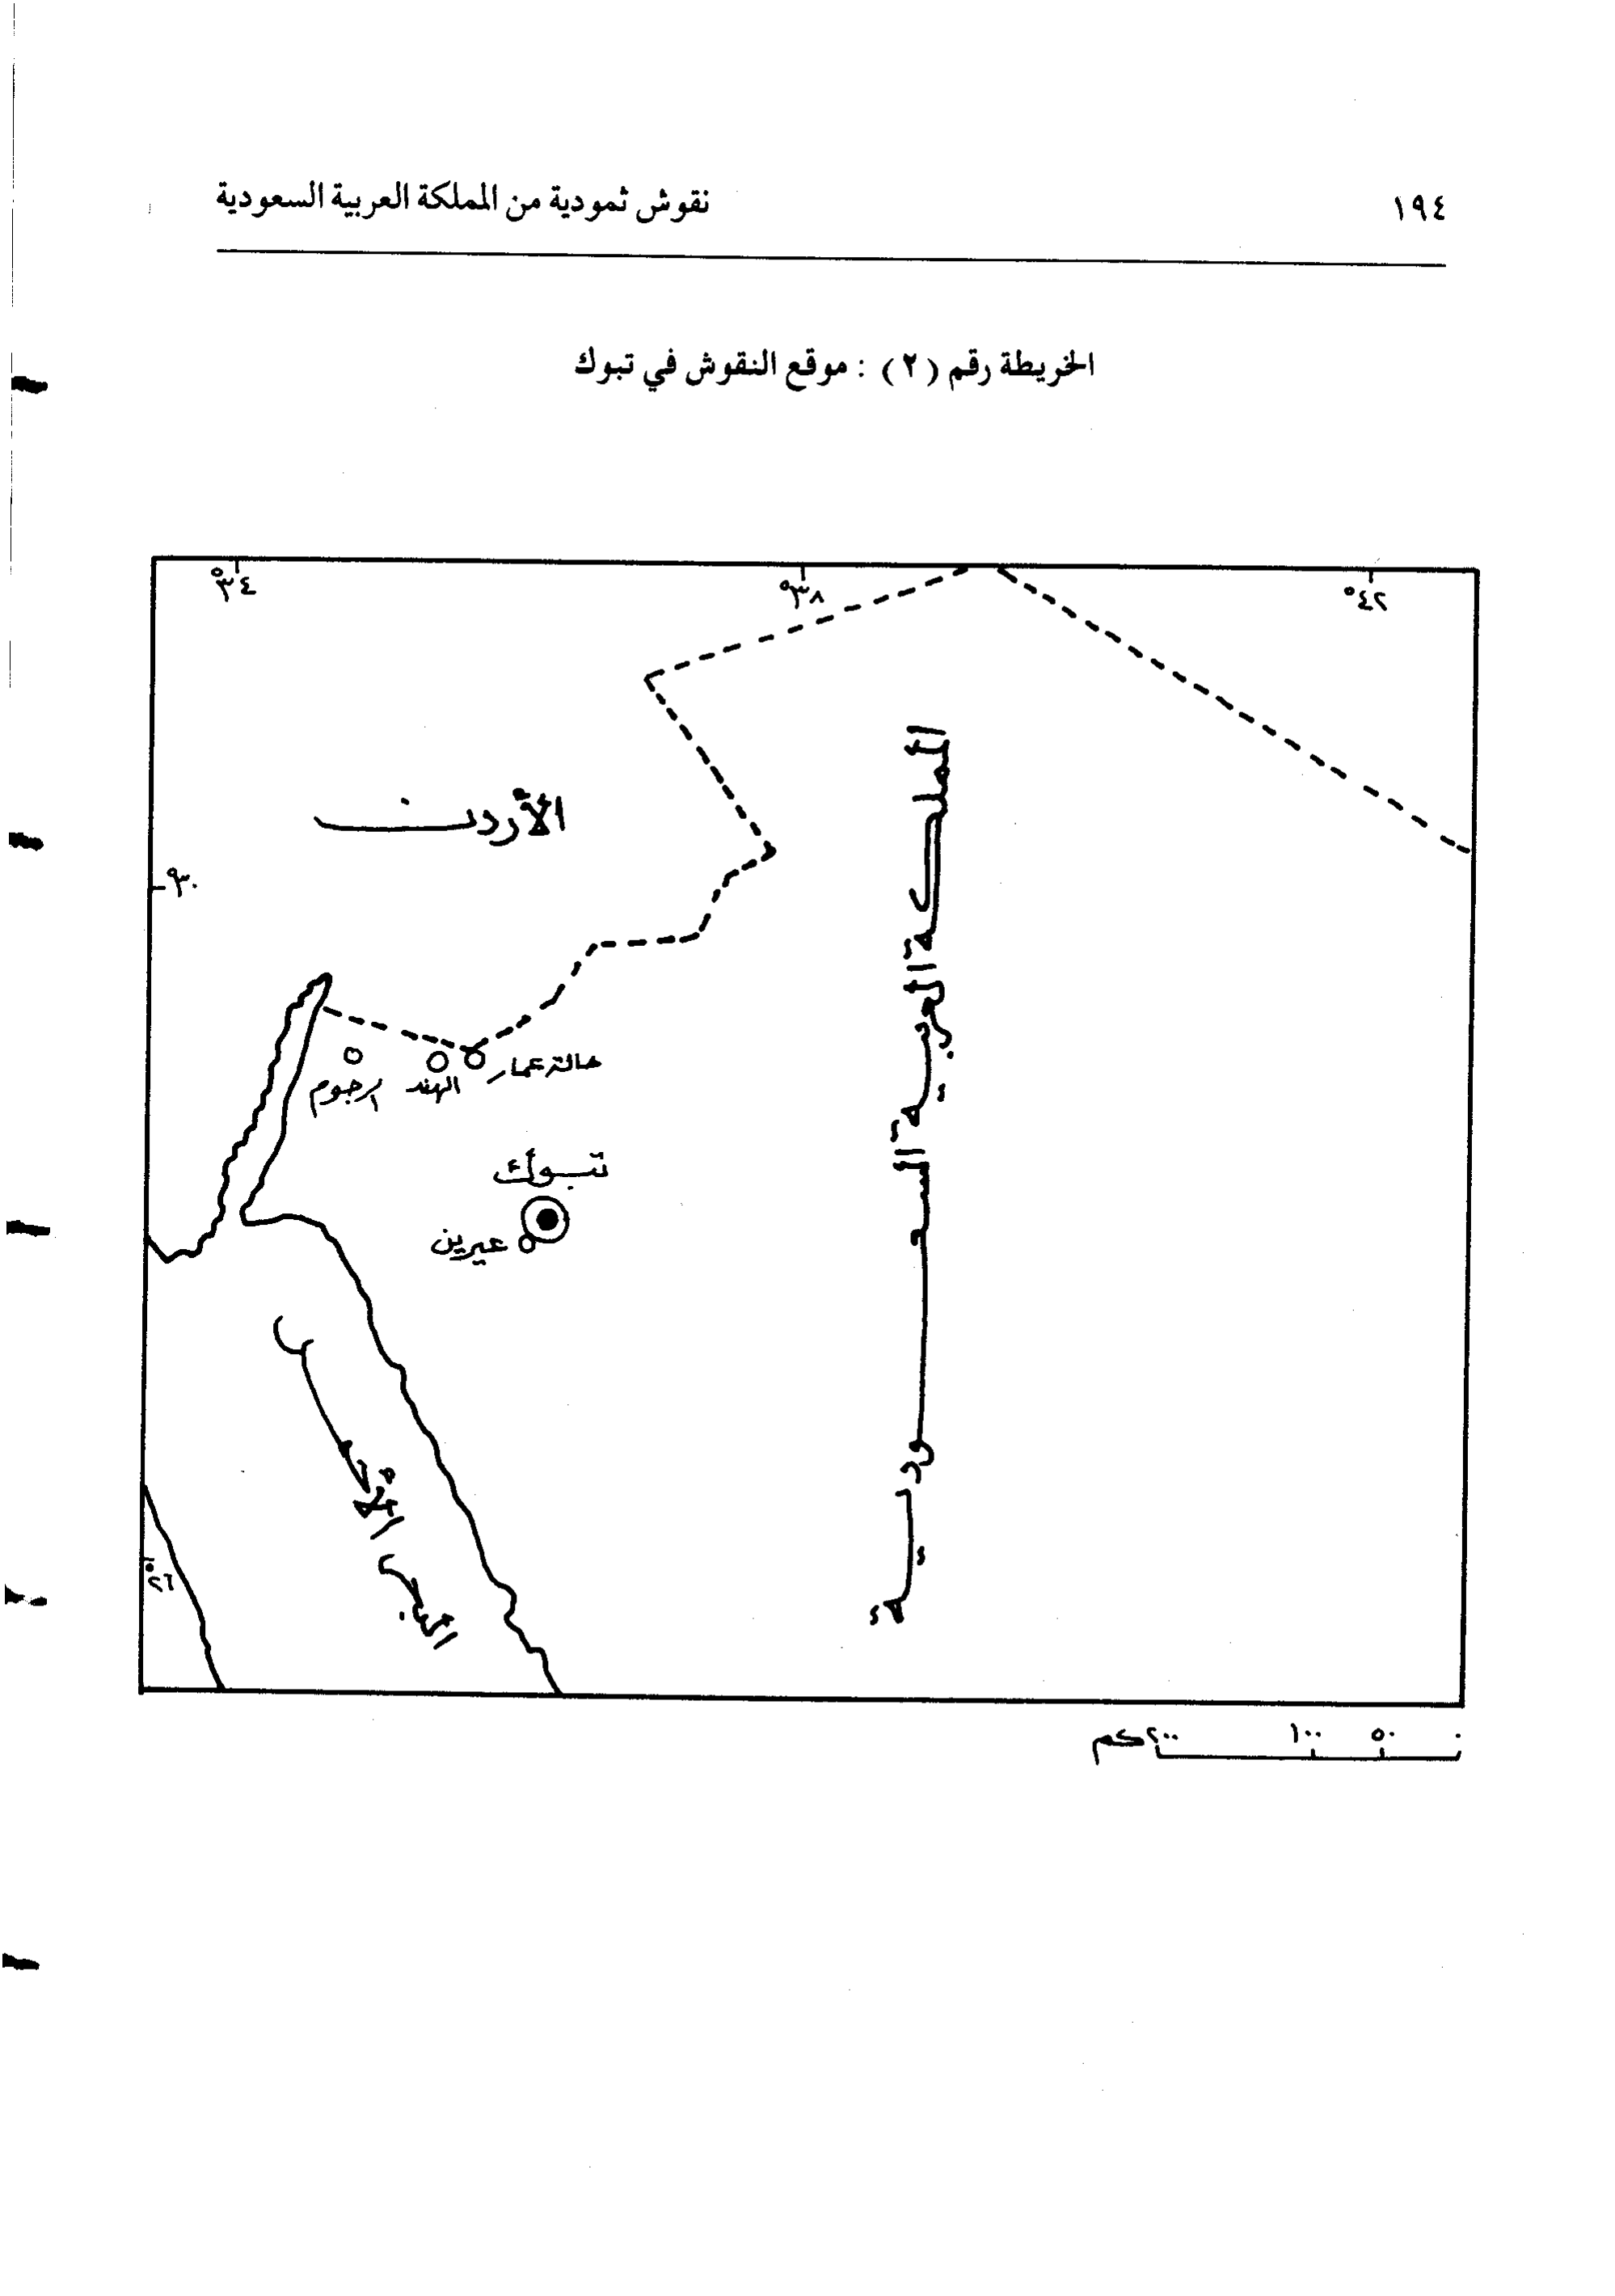 ١٩٤
نقوش ثمودية من المملكة العربية السعودية
الخريطة رقم (٢) : موقع النقوش في تبوك
٣٤°
٣٨°
٤٢°
الأردن
المملكة العربية السعودية
٣٠°
حالة عمار
الهند
الرجوم
تبوك
عيرين
البحر الأحمر
٢٦°
٠ ٥٠ ١٠٠ ٢٠٠ كم